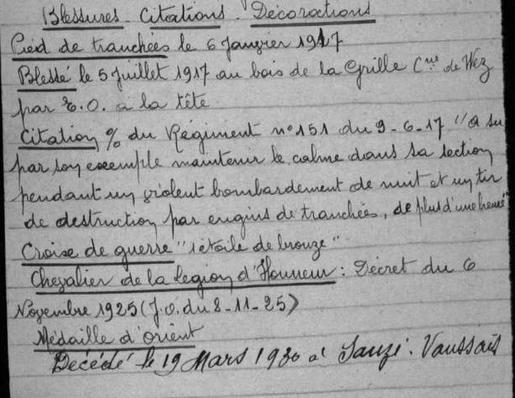 Blessures. Citations. Décorations
Pied de tranchées le 6 Janvier 1917
Blessé le 5 Juillet 1917 au bois de la Grille Cne de Wez
par E.O. à la tête
Citation % du Régiment n° 151 du 9-6-17 "a su
par son exemple maintenir le calme dans sa section
pendant un violent bombardement de nuit et un tir
de destruction par engins de tranchées, de plus d'une heure"
Croise de guerre "1 étoile de bronze"
Chevalier de la légion d'Honneur: Décret du 6
Novembre 1925 (J.O. du 8-11-25)
Médaille d'orient
Décédé le 19 Mars 1930 à Sauzé-Vaussais